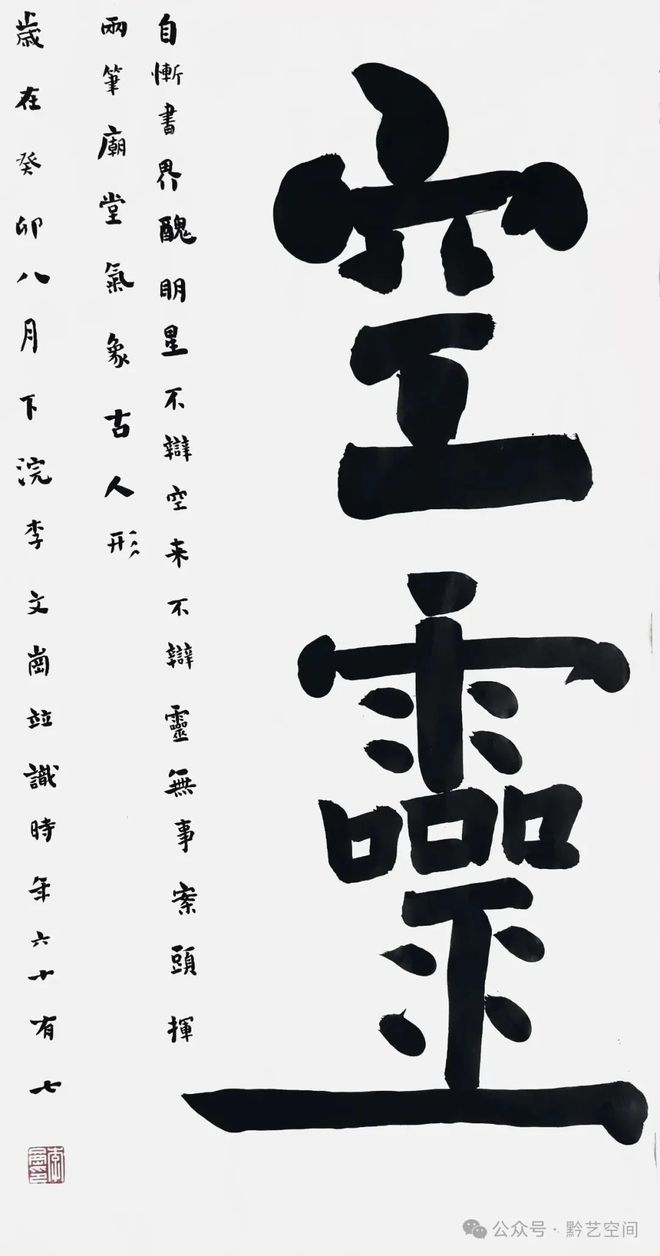 空靈
自慚書界醜明星不辯空来不辯靈無事案頭揮
兩筆廟堂氣象古人形
歳在癸卯八月下浣李文崗竝識時年六十有七
公众号·黔艺空间